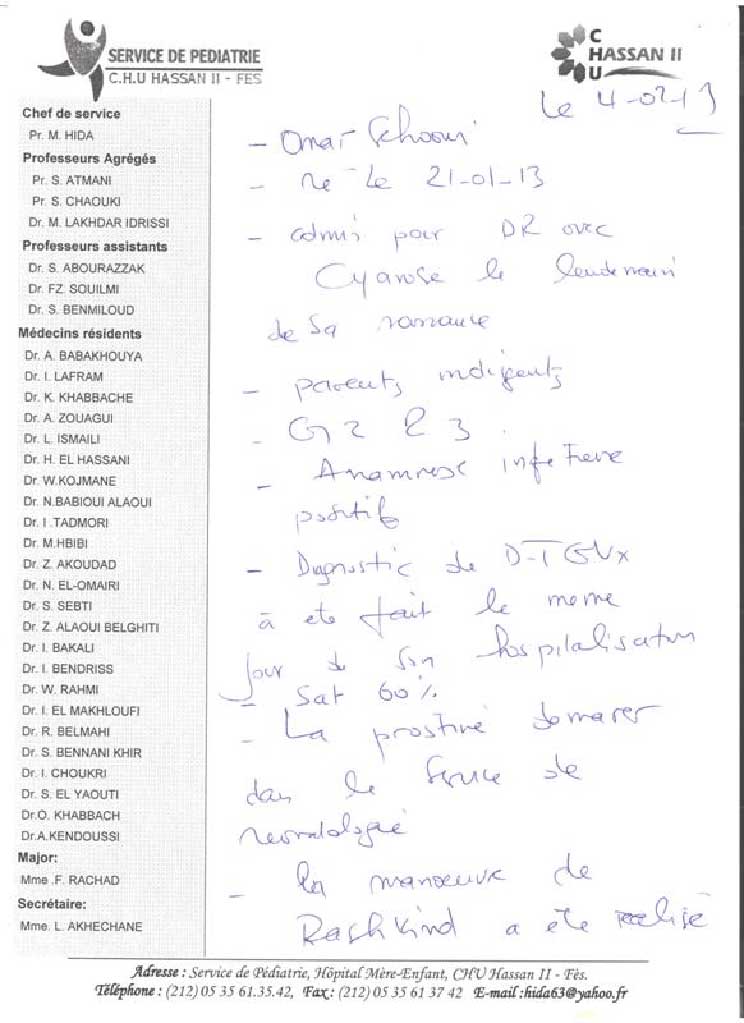 SERVICE DE PEDIATRIE
C.H.U HASSAN II - FES
CHU HASSAN II
Le 4-02-13
Chef de service
Pr. M. HIDA
Professeurs Agrégés
Pr. S. ATMANI
Pr. S. CHAOUKI
Dr. M. LAKHDAR IDRISSI
Professeurs assistants
Dr. S. ABOURAZZAK
Dr. FZ. SOUILMI
Dr. S. BENMILOUD
Médecins résidents
Dr. A. BABAKHOUYA
Dr. I. LAFRAM
Dr. K. KHABBACHE
Dr. A. ZOUAGUI
Dr. L. ISMAILI
Dr. H. EL HASSANI
Dr. W.KOJMANE
Dr. N.BABIOUI ALAOUI
Dr. I .TADMORI
Dr. M.HBIBI
Dr. Z. AKOUDAD
Dr. N. EL-OMAIRI
Dr. S. SEBTI
Dr. Z. ALAOUI BELGHITI
Dr. I. BAKALI
Dr. I. BENDRISS
Dr. W. RAHMI
Dr. I. EL MAKHLOUFI
Dr. R. BELMAHI
Dr. S. BENNANI KHIR
Dr. I. CHOUKRI
Dr. S. EL YAOUTI
Dr.O. KHABBACH
Dr.A.KENDOUSSI
Major:
Mme .F. RACHAD
Secrétaire:
Mme. L. AKHECHANE
- Omar
- né le 21-01-13
- admis pour DR avec
Cyanose le lendemain
de sa naissance
- parents indigents
- G2 P3
- Anamnèse infectieuse
positif
- Diagnostic de D-TGVx
à été fait le meme
jour de son hospitalisation
- Sat 60%
- La prostine demarer
dans le service de
neonatologie
- la manoeuvre de
Rashkind a été réalisé
Adresse : Service de Pédiatrie, Hôpital Mère-Enfant, CHU Hassan II - Fès.
Téléphone : (212) 05 35 61.35.42, Fax : (212) 05 35 61 37 42 E-mail :hida63@yahoo.fr